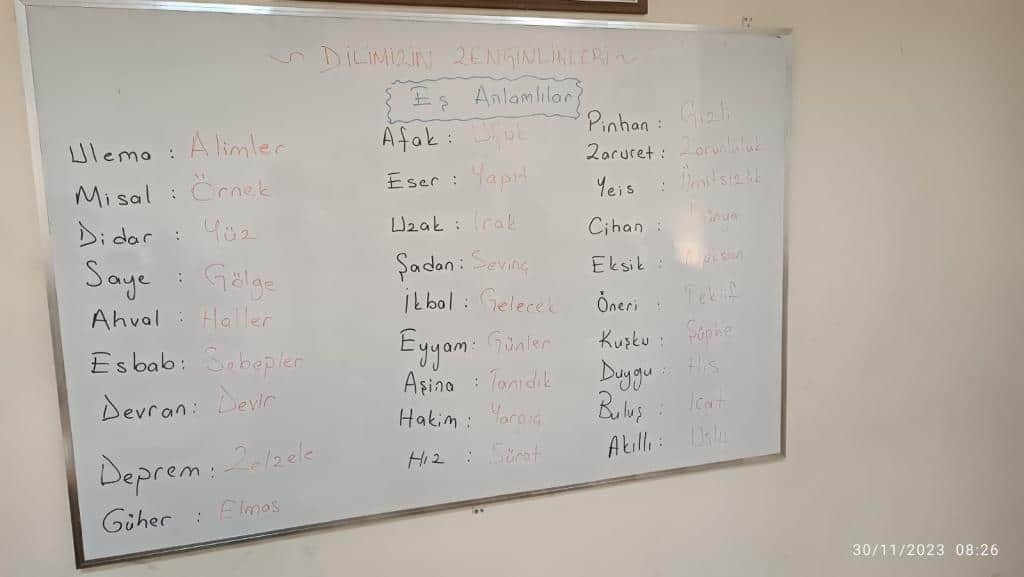 ~ DİLİMİZİN ZENGİNLİKLERİ ~
Eş Anlamlılar
Ulema : Alimler
Misal : Örnek
Didar : Yüz
Saye : Gölge
Ahval : Haller
Esbab : Sebepler
Devran : Devir
Deprem : Zelzele
Güher : Elmas
Afak : Ufuk
Eser : Yapıt
Uzak : Irak
Şadan : Sevinç
İkbal : Gelecek
Eyyam : Günler
Aşina : Tanıdık
Hakim : Yargıç
Hız : Sürat
Pinhan : Gizli
Zaruret : Zorunluluk
Yeis : Ümitsizlik
Cihan : Dünya
Eksik : Noksan
Öneri : Teklif
Kuşku : Şüphe
Duygu : His
Buluş : İcat
Akıllı : Uslu
30/11/2023 08:26